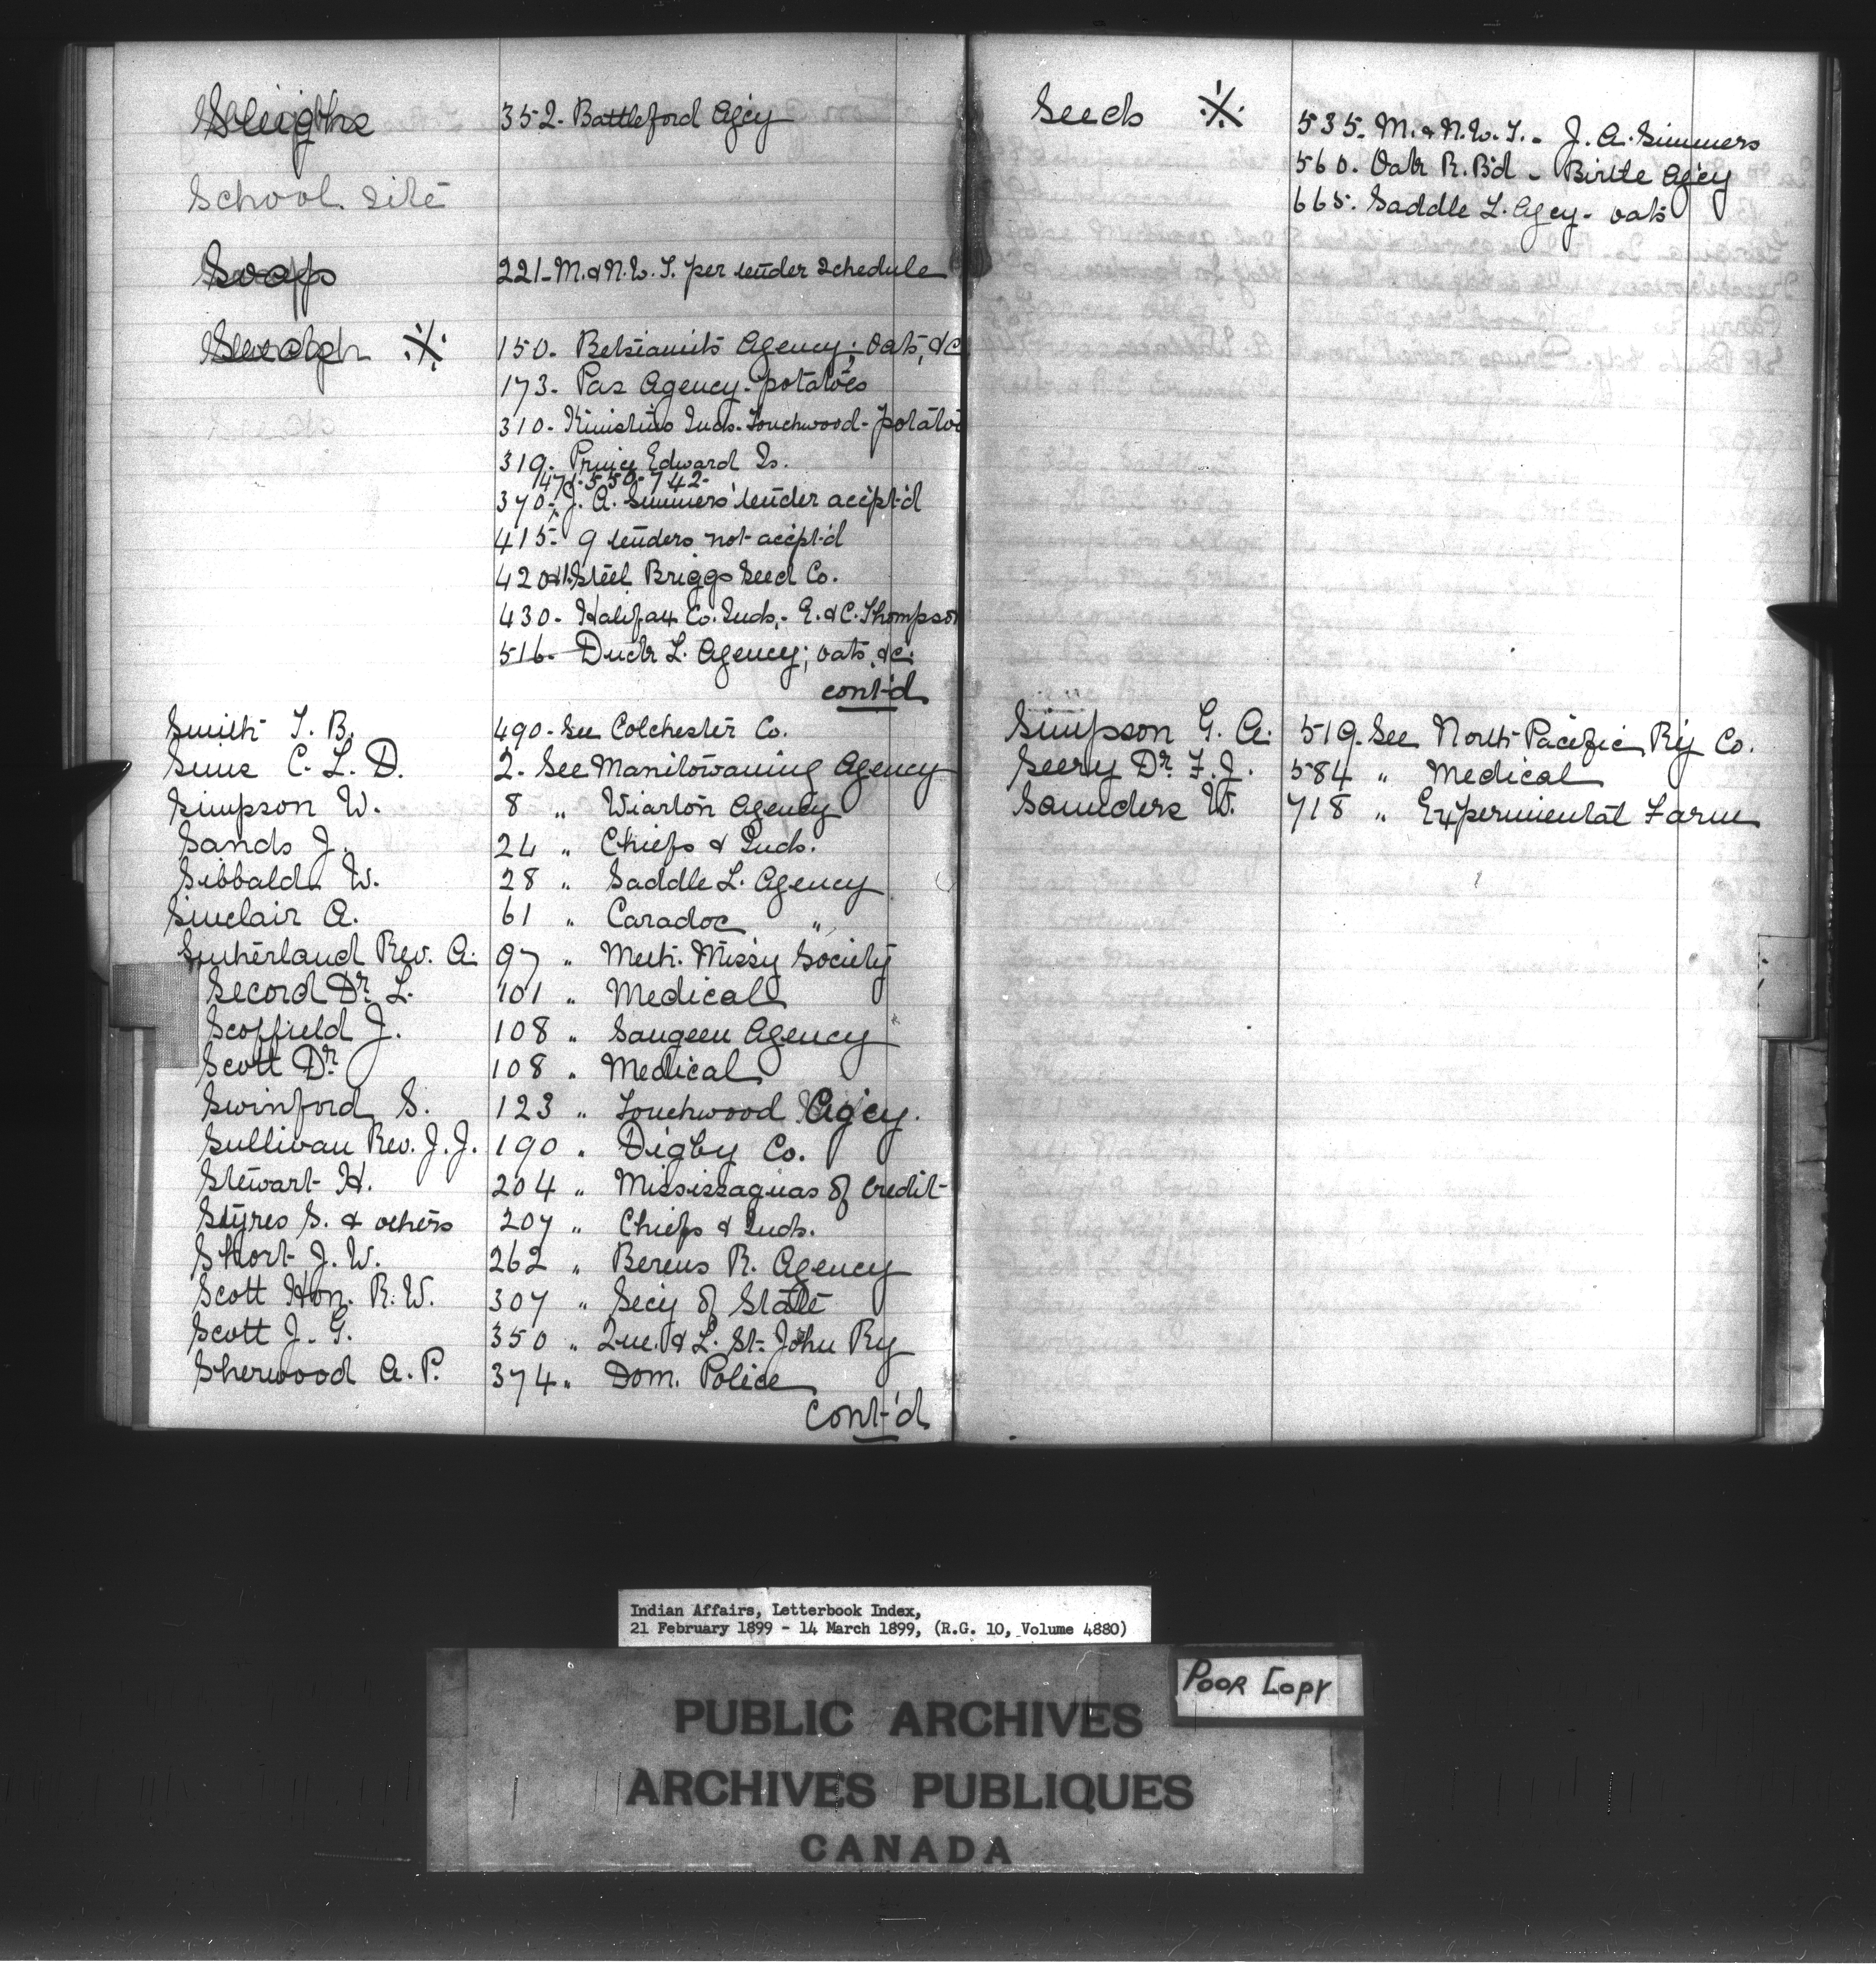 Sleighs 352. Battleford Agcy
School site
Soap 221 - M. & N.W.T. per tender schedule
※ 150. Betsiamits Agency; oats, &c
173. Pas Agency - potatoes
310. Kinistino Inds. Touchwood - potatoes
319. Prince Edward Is.
471-550-742-
370. J. A. Simmers' tender accept'd
415. 9 tenders not accept'd
420 & 1. Steel Briggs Seed Co.
430. Halifax Co. Inds. - E. & C. Thompson
516 - Duck L. Agency; oats, &c.
cont'd
Smith T. B. 490 - See Colchester Co.
Sims C. L. D. 2. See Manitowaning Agency
Simpson W. 8 " Wiarton Agency
Sands J. 24 " Chiefs & Inds.
Sibbald W. 28 " Saddle L. Agency
Sinclair A. 61 " Caradoc "
Sutherland Rev. A. 97 " Meth. Missy Society
Secord Dr. L. 101 " Medical
Scoffield J. 108 " Saugeen Agency
Scott Dr. 108 " Medical
Swinford S. 123 " Touchwood Agcy.
Sullivan Rev. J. J. 190 " Digby Co.
Stewart H. 204 " Mississaguas of Credit
Styres S. & others 207 " Chiefs & Inds.
Short J. W. 262 " Berens R. Agency
Scott Hon. R. W. 307 " Secy of State
Scott J. G. 350 " Que. & L. St. John Ry
Sherwood A. P. 374 " Dom. Police
Cont'd
Seeds ※ 535. M. & N.W.T. - J. A. Simmers
560. Oak R. Bd - Birtle Agcy
665. Saddle L. Agcy - oats
Simpson G. A. 519. See North Pacific Ry Co.
Seery Dr. F. J. 584 " Medical
Saunders W. 718 " Experimental Farm
Indian Affairs, Letterbook Index,
21 February 1899 - 14 March 1899, (R.G. 10, Volume 4880)
POOR COPY
PUBLIC ARCHIVES
ARCHIVES PUBLIQUES
CANADA